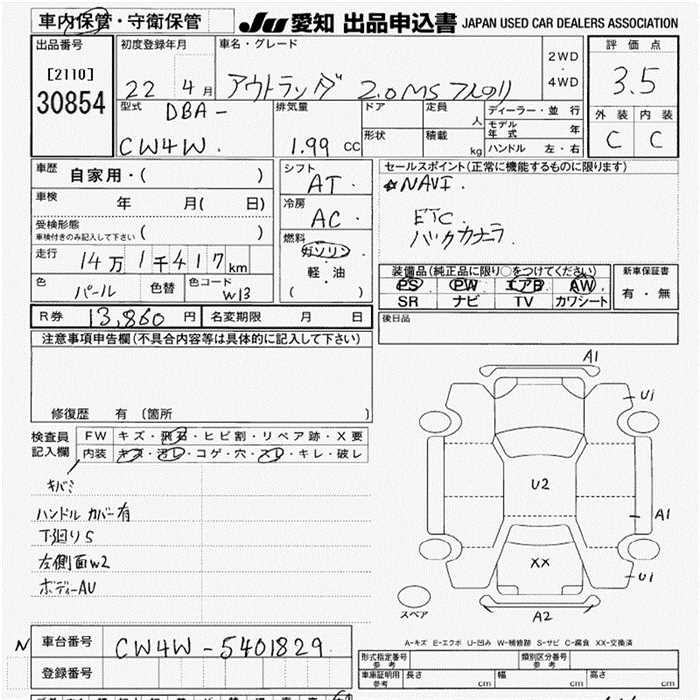 車内保管・守衛保管 JU 愛知 出品申込書 JAPAN USED CAR DEALERS ASSOCIATION
出品番号 初度登録年月 車名・グレード 2WD ・ 4WD 評価点
[2110] 22 4月 アウトランダ 2.0MS 3.5
30854 型式 DBA- 排気量 ドア 定員 人 ディーラー・並行 外装 内装
CW4W. 1.99 CC 形状 積載 kg モデル年式 年 C C
ハンドル 左・右
車歴 自家用・( ) シフト AT. セールスポイント(正常に機能するものに限ります)
車検 年 月( 日) 冷房 AC. ☆NAVI.
受検形態 ETC.
車検付きのみ記入して下さい ( ) 燃料 バックカメラ.
走行 14万1千417km ガソリン
軽・油 装備品(純正品に限り○をつけてください) 新車保証書
色 パール 色替 色コード W13 ( ) PS PW エアB AW 有・無
SR ナビ TV カワシート
R券 13,860円 名変期限 月 日 後日品
注意事項申告欄(不具合内容等は具体的に記入して下さい)
修復歴 有 (箇所 )
検査員 FW キズ・飛石・ヒビ割・リペア跡・X要
記入欄 内装 キズ・汚レ・コゲ・穴・スレ・キレ・破レ
キバミ
ハンドルカバー有
下廻りS
左側面W2
ボディーAU
A1
U1
U2
A1
XX
U1
スペア
A2
A-キズ E-エクボ U-凹み W-補修跡 S-サビ C-腐食 XX-交換済
N 車台番号 CW4W-5401829
登録番号
形式指定番号 参考 類別区分番号 参考
車庫証明用 参考 長さ cm 幅 cm 高さ cm